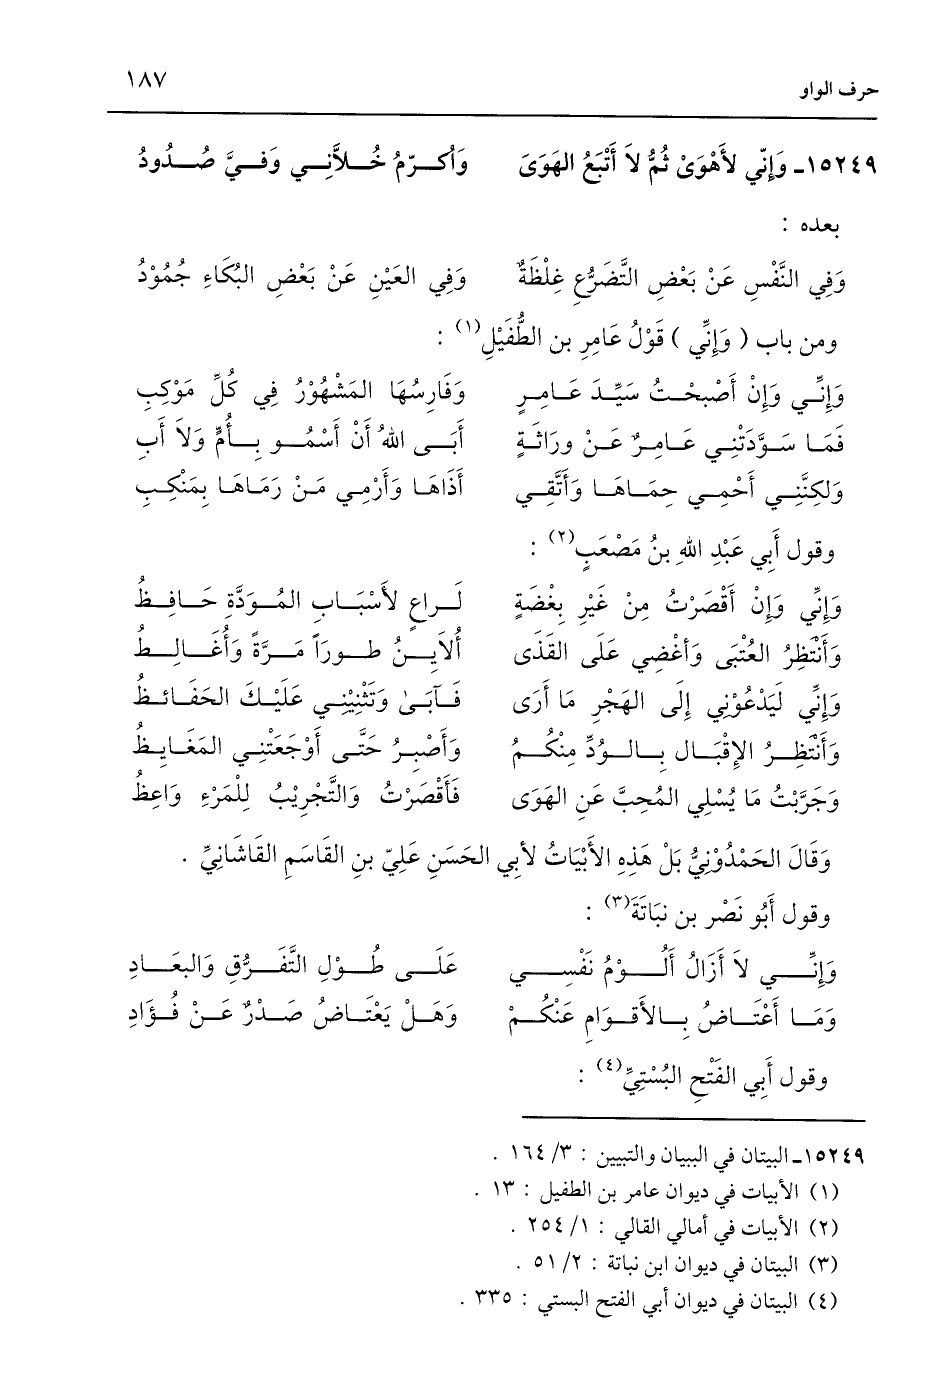 حرف الواو ١٨٧
١٥٢٤٩ـ وَإِنّي لأَهْوَىْ ثُمُّ لاَ أَتْبَعُ الهَوَىَ وَأكرّمُ خُلاَّنِي وَفيَّ صُدُودُ
بعده :
وَفِي النَّفْسِ عَنْ بَعْضِ التَّضَرُّعِ غِلْظَةٌ وَفِي العَيْنِ عَنْ بَعْضِ البُكَاءِ جُمُوْدُ
ومن باب ( وَإِنِّي ) قَوْلُ عَامِرِ بن الطُّفَيْلِ(١) :
وَإِنِّي وَإِنْ أَصْبحْتُ سَيِّدَ عَامِرٍ وَفَارِسُهَا المَشْهُوْرُ فِي كُلِّ مَوْكِبِ
فَمَا سَوَّدَتْنِي عَامِرٌ عَنْ ورَاثَةٍ أَبَى اللهُ أَنْ أَسْمُو بِأُمٍّ وَلاَ أَبِ
وَلكِنَّنِي أَحْمِي حِمَاهَا وَأَتَّقِي أَذَاهَا وَأَرْمِي مَنْ رَمَاهَا بِمَنْكِبِ
وقول أَبي عَبْدِ اللهِ بنُ مَصْعَبٍ(٢) :
وَإِنِّي وَإِنْ أَقْصَرْتُ مِنْ غَيْرِ بِغْضَةٍ لَراعٍ لأَسْبَابِ المُوَدَّةِ حَافِظُ
وَأَنْتَظِرُ العُتْبَى وَأغْضِي عَلَى القَذَى أُلاَيِنُ طوراً مَرَّةً وَأُغَالِطُ
وَإِنِّي لَيَدْعُوْنِي إِلَى الهَجْرِ مَا أَرَى فَآبَىٰ وَتَثْنِيْنِي عَلَيْكَ الحَفَائظُ
وَأَنْتَظِرُ الإِقْبَال بِالوُدِّ مِنْكُمُ وَأَصْبِرُ حَتَّى أَوْجَعَتْنِي المَغَايِظُ
وَجَرَّبْتُ مَا يُسْلِي المُحِبَّ عَنِ الهَوَى فَأَقْصَرْتُ وَالتَّجْرِيْبُ لِلْمَرْءِ وَاعِظُ
وَقَالَ الحَمْدُوْنِيُّ بَلْ هَذِهِ الأَبْيَاتُ لأبِي الحَسَنِ عَلِيّ بنِ القَاسَمِ القَاشَانِيِّ .
وقول أَبُو نَصْر بن نبَاتَةَ(٣) :
وَإِنِّي لاَ أَزَالُ أَلُوْمُ نَفْسِي عَلَى طُوْلِ التَّفَرُّقِ وَالبعَادِ
وَمَا أَعْتَاضُ بِالأَقْوَامِ عَنْكُمْ وَهَلْ يَعْتَاضُ صَدْرٌ عَنْ فُؤَادِ
وقول أَبِي الفَتْحِ البُسْتِيِّ(٤) :
١٥٢٤٩ـ البيتان في البيان والتبيين : ٣/ ١٦٤ .
(١) الأبيات في ديوان عامر بن الطفيل : ١٣ .
(٢) الأبيات في أمالي القالي : ١/ ٢٥٤ .
(٣) البيتان في ديوان ابن نباتة : ٢/ ٥١ .
(٤) البيتان في ديوان أبي الفتح البستي : ٣٣٥ .